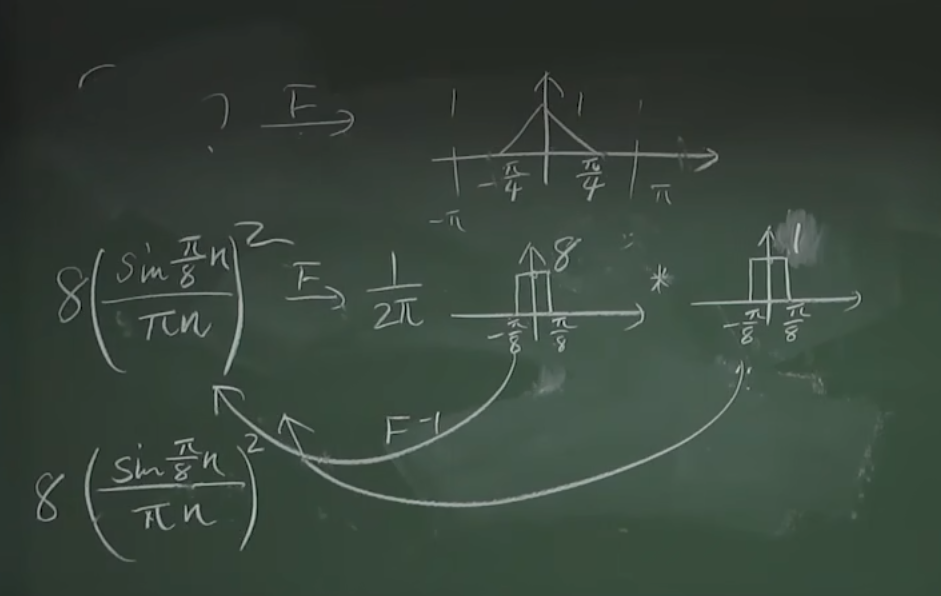 ? F→ 1 1 1
-π -π/4 π/4 π
8(sin π/8 n / πn)² F→ 1/2π 8 * 1
-π/8 π/8 -π/8 π/8
F⁻¹
8(sin π/8 n / πn)²